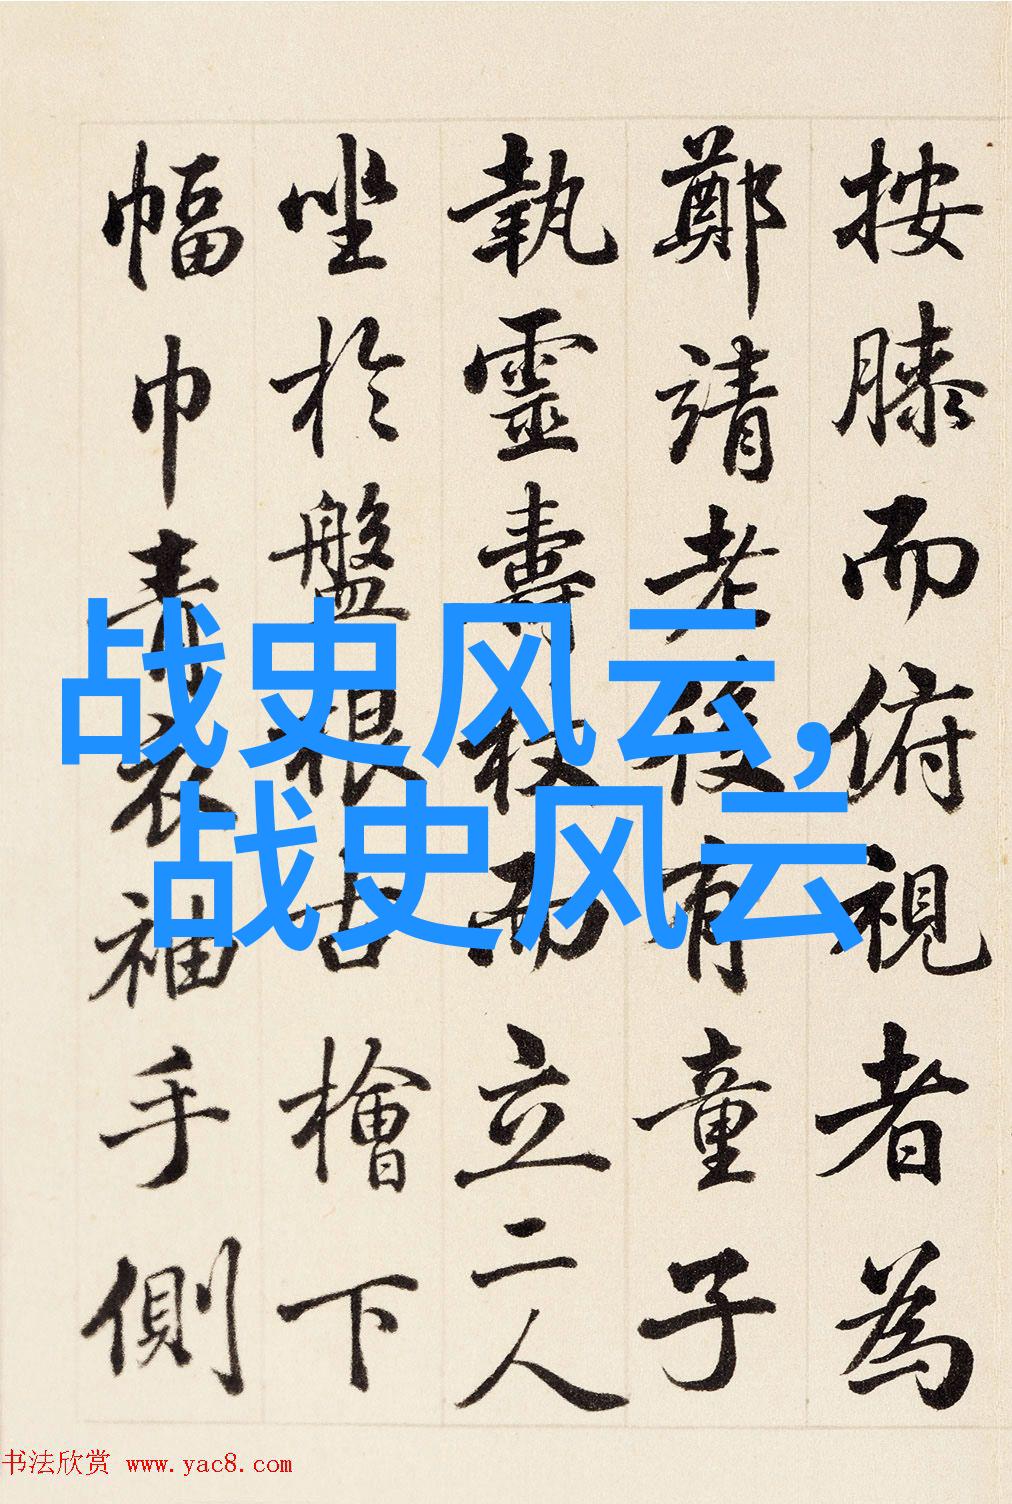 按膝而俯視者為
鄭靖老後有童子
執靈壽杖而立二人
坐於盤根古檜下
幅巾青衣袖手側
战史风云,
战史风云
书法欣赏 www.yac8.com